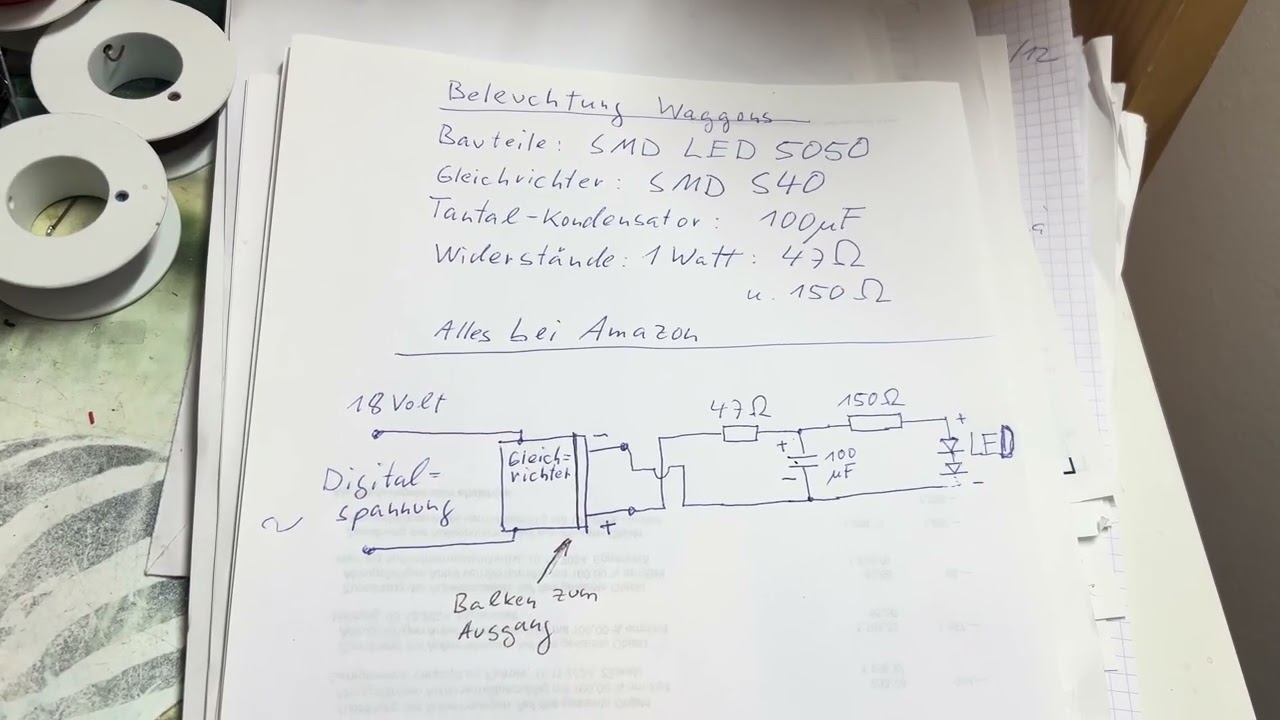 /12
Beleuchtung Waggons
Bauteile: SMD LED 5050
Gleichrichter: SMD S40
Tantal-Kondensator: 100µF
Widerstände: 1 Watt: 47Ω
u. 150Ω
Alles bei Amazon
18 Volt
47Ω
150Ω
+
Gleich=
richter
−
+
100
µF
−
LED
−
Digital=
spannung
~
+
Balken zum
Ausgang